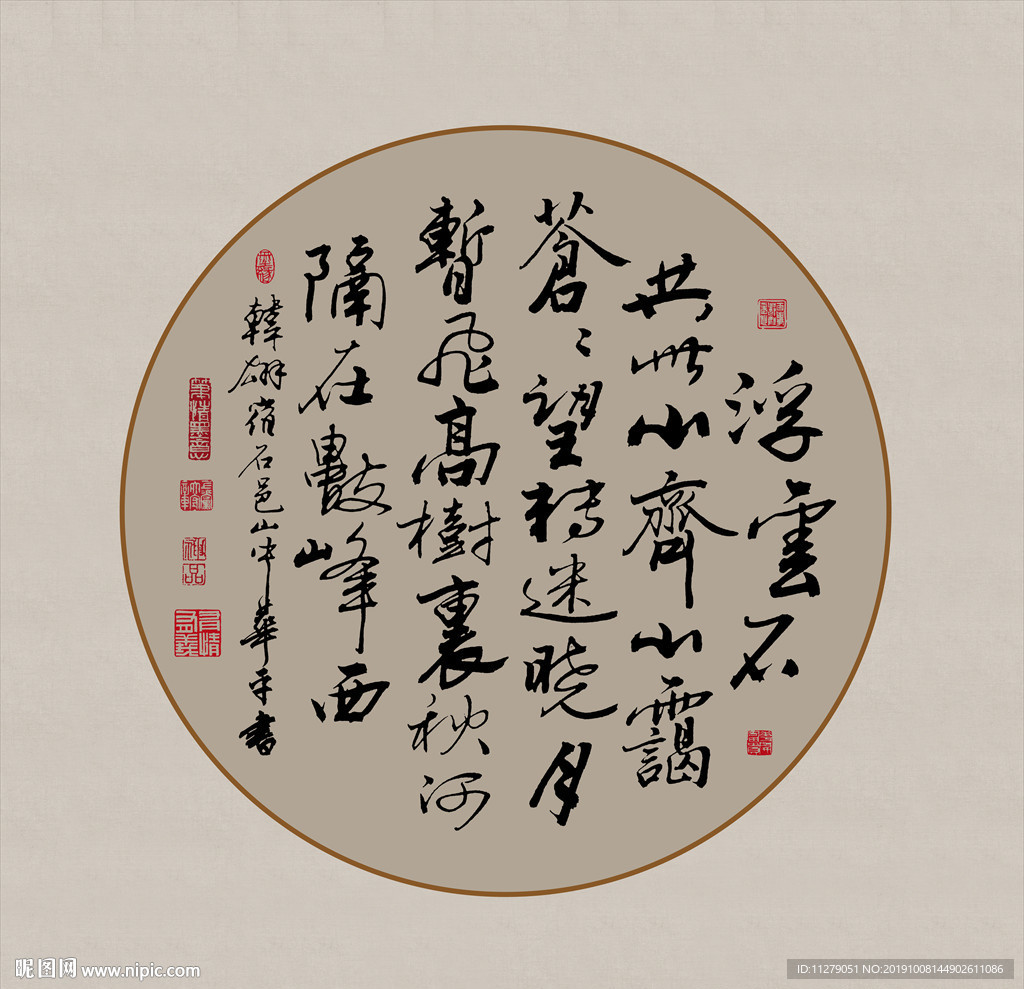 浮雲不
共此山齊山靄
蒼〻望轉迷曉月
暫飛高樹裏秋河
隔在數峰西
韓翃宿石邑山中華平書
神品
昵图网 www.nipic.com
ID:11279051 NO:20191008144902611086